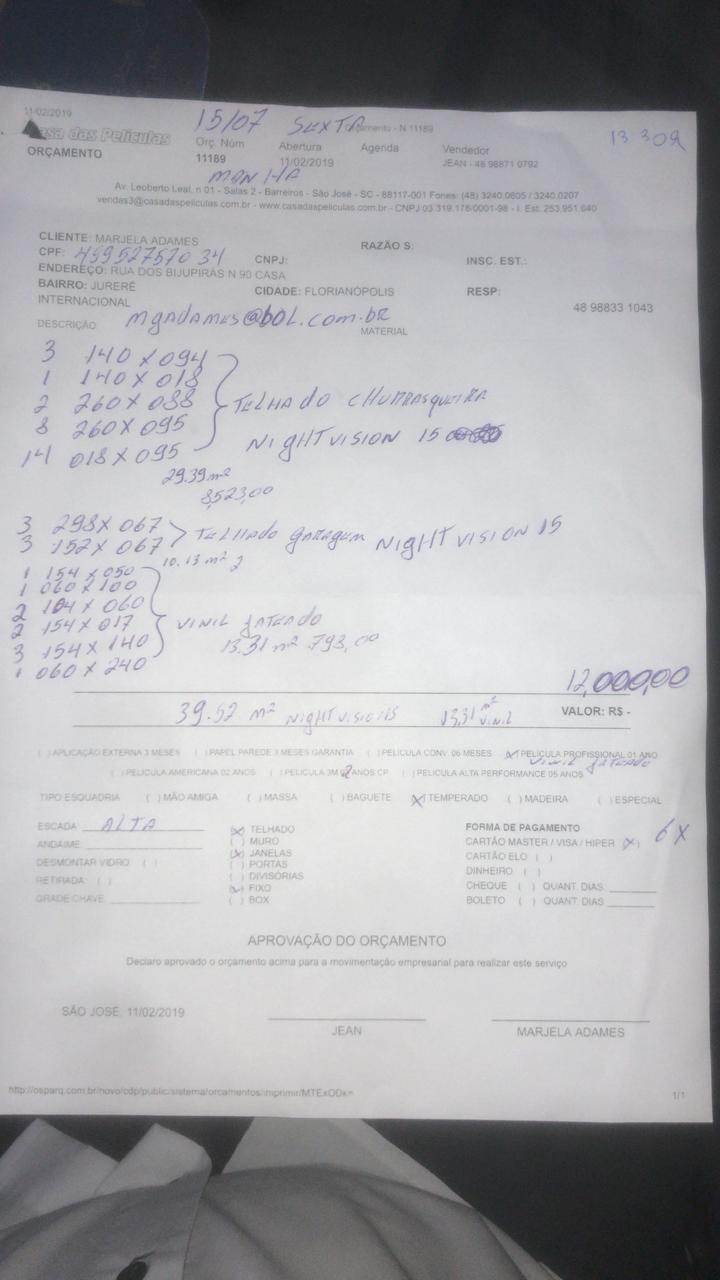 11/02/2019
15/07 SEXTA
Orçamento - N 11189
13 309
Casa das Películas
ORÇAMENTO
Orç. Núm Abertura Agenda Vendedor
11189 11/02/2019 JEAN - 48 98871 0792
MANHA
Av. Leoberto Leal, n 01 - Salas 2 - Barreiros - São José - SC - 88117-001 Fones: (48) 3240.0605 / 3240.0207
vendas3@casadaspeliculas.com.br - www.casadaspeliculas.com.br - CNPJ 03.319.176/0001-98 - I. Est. 253.951.640
CLIENTE: MARJELA ADAMES RAZÃO S:
CPF: 459527570 34 CNPJ: INSC. EST.:
ENDEREÇO: RUA DOS BIJUPIRÁS N 90 CASA
BAIRRO: JURERÊ CIDADE: FLORIANÓPOLIS RESP:
INTERNACIONAL 48 98833 1043
mgadames@bol.com.br
DESCRIÇÃO MATERIAL
3 140 X 094
1 140 X 018
2 260 X 088 TELHADO CHURRASQUEIRA
8 260 X 095
14 018 X 095 NIGHTVISION 15
29.39 m²
8,523,00
3 298 X 067
3 152 X 067 TELHADO GARAGEM NIGHTVISION 15
10.13 m²
1 154 X 050
1 060 X 100
2 104 X 060
2 154 X 017 VINIL JATEADO
3 154 X 140 13.31 m² 793,00
1 060 X 240
12,000,00
39.52 m² NIGHTVISION 15 13,31 m² VINIL VALOR: R$ -
( ) APLICAÇÃO EXTERNA 3 MESES ( ) PAPEL PAREDE 3 MESES GARANTIA ( ) PELICULA CONV. 06 MESES (X) PELÍCULA PROFISSIONAL 01 ANO
VINIL JATEADO
( ) PELICULA AMERICANA 02 ANOS ( ) PELICULA 3M 02 ANOS CP ( ) PELICULA ALTA PERFORMANCE 05 ANOS
TIPO ESQUADRIA ( ) MÃO AMIGA ( ) MASSA ( ) BAGUETE (X) TEMPERADO ( ) MADEIRA ( ) ESPECIAL
ESCADA ALTA
ANDAIME
DESMONTAR VIDRO ( )
RETIRADA: ( )
GRADE CHAVE
(X) TELHADO
( ) MURO
(X) JANELAS
( ) PORTAS
( ) DIVISÓRIAS
(X) FIXO
( ) BOX
FORMA DE PAGAMENTO
CARTÃO MASTER / VISA / HIPER (X) 6 X
CARTÃO ELO ( )
DINHEIRO ( )
CHEQUE ( ) QUANT. DIAS:
BOLETO ( ) QUANT. DIAS:
APROVAÇÃO DO ORÇAMENTO
Declaro aprovado o orçamento acima para a movimentação empresarial para realizar este serviço
SÃO JOSÉ, 11/02/2019
JEAN MARJELA ADAMES
http://osparq.com.br/novo/cdp/public/sistema/orcamentos/imprimir/MTExODk= 1/1